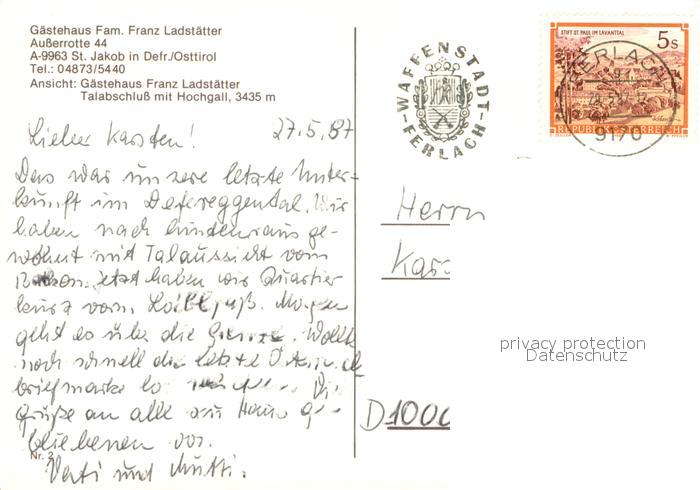 Gästehaus Fam. Franz Ladstätter
Außerrotte 44
A-9963 St. Jakob in Defr./Osttirol
Tel.: 04873/5440
Ansicht: Gästehaus Franz Ladstätter
Talabschluß mit Hochgall, 3435 m
Lieber Karsten! 27.5.87
Das war unsere letzte Unter-
kunft im Defereggental. Wir
haben nach hintenraus ge-
wohnt mit Talaussicht vom
Balkon. Jetzt haben wir Quartier
kurz vorm Loiblpaß. Morgen
geht es über die Grenze. Wollte
noch schnell die letzte
briefmarke
grüße an alle zu Haus ge-
bliebenen von
Vati und Mutti.
Nr. 2
WAFFENSTADT
FERLACH
STIFT ST. PAUL IM LAVANTTAL
5s
REPUBLIK ÖSTERREICH
FERLACH
9170
Herrn
Kars
D1000
privacy protection
Datenschutz